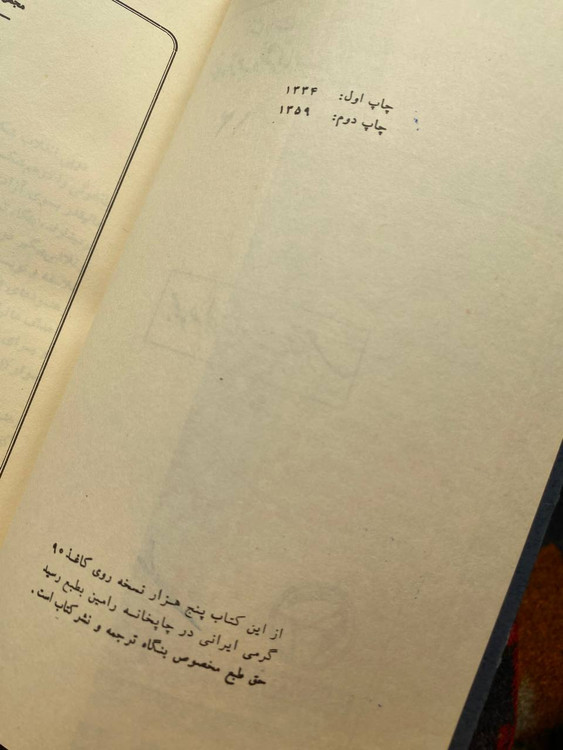 چاپ اول: ۱۳۳۴
چاپ دوم: ۱۳۵۹
از این کتاب پنج هزار نسخه روی کاغذ ۹۰
گرمی ایرانی در چاپخانه رامین بطبع رسید
حق طبع مخصوص بنگاه ترجمه و نشر کتاب است.